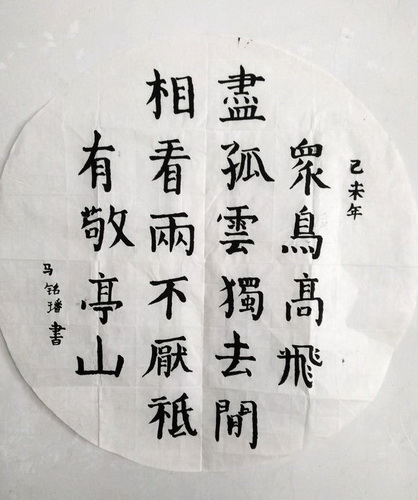 己未年
眾鳥髙飛
盡孤雲獨去閒
相看兩不厭祗
有敬亭山
马铭璠書